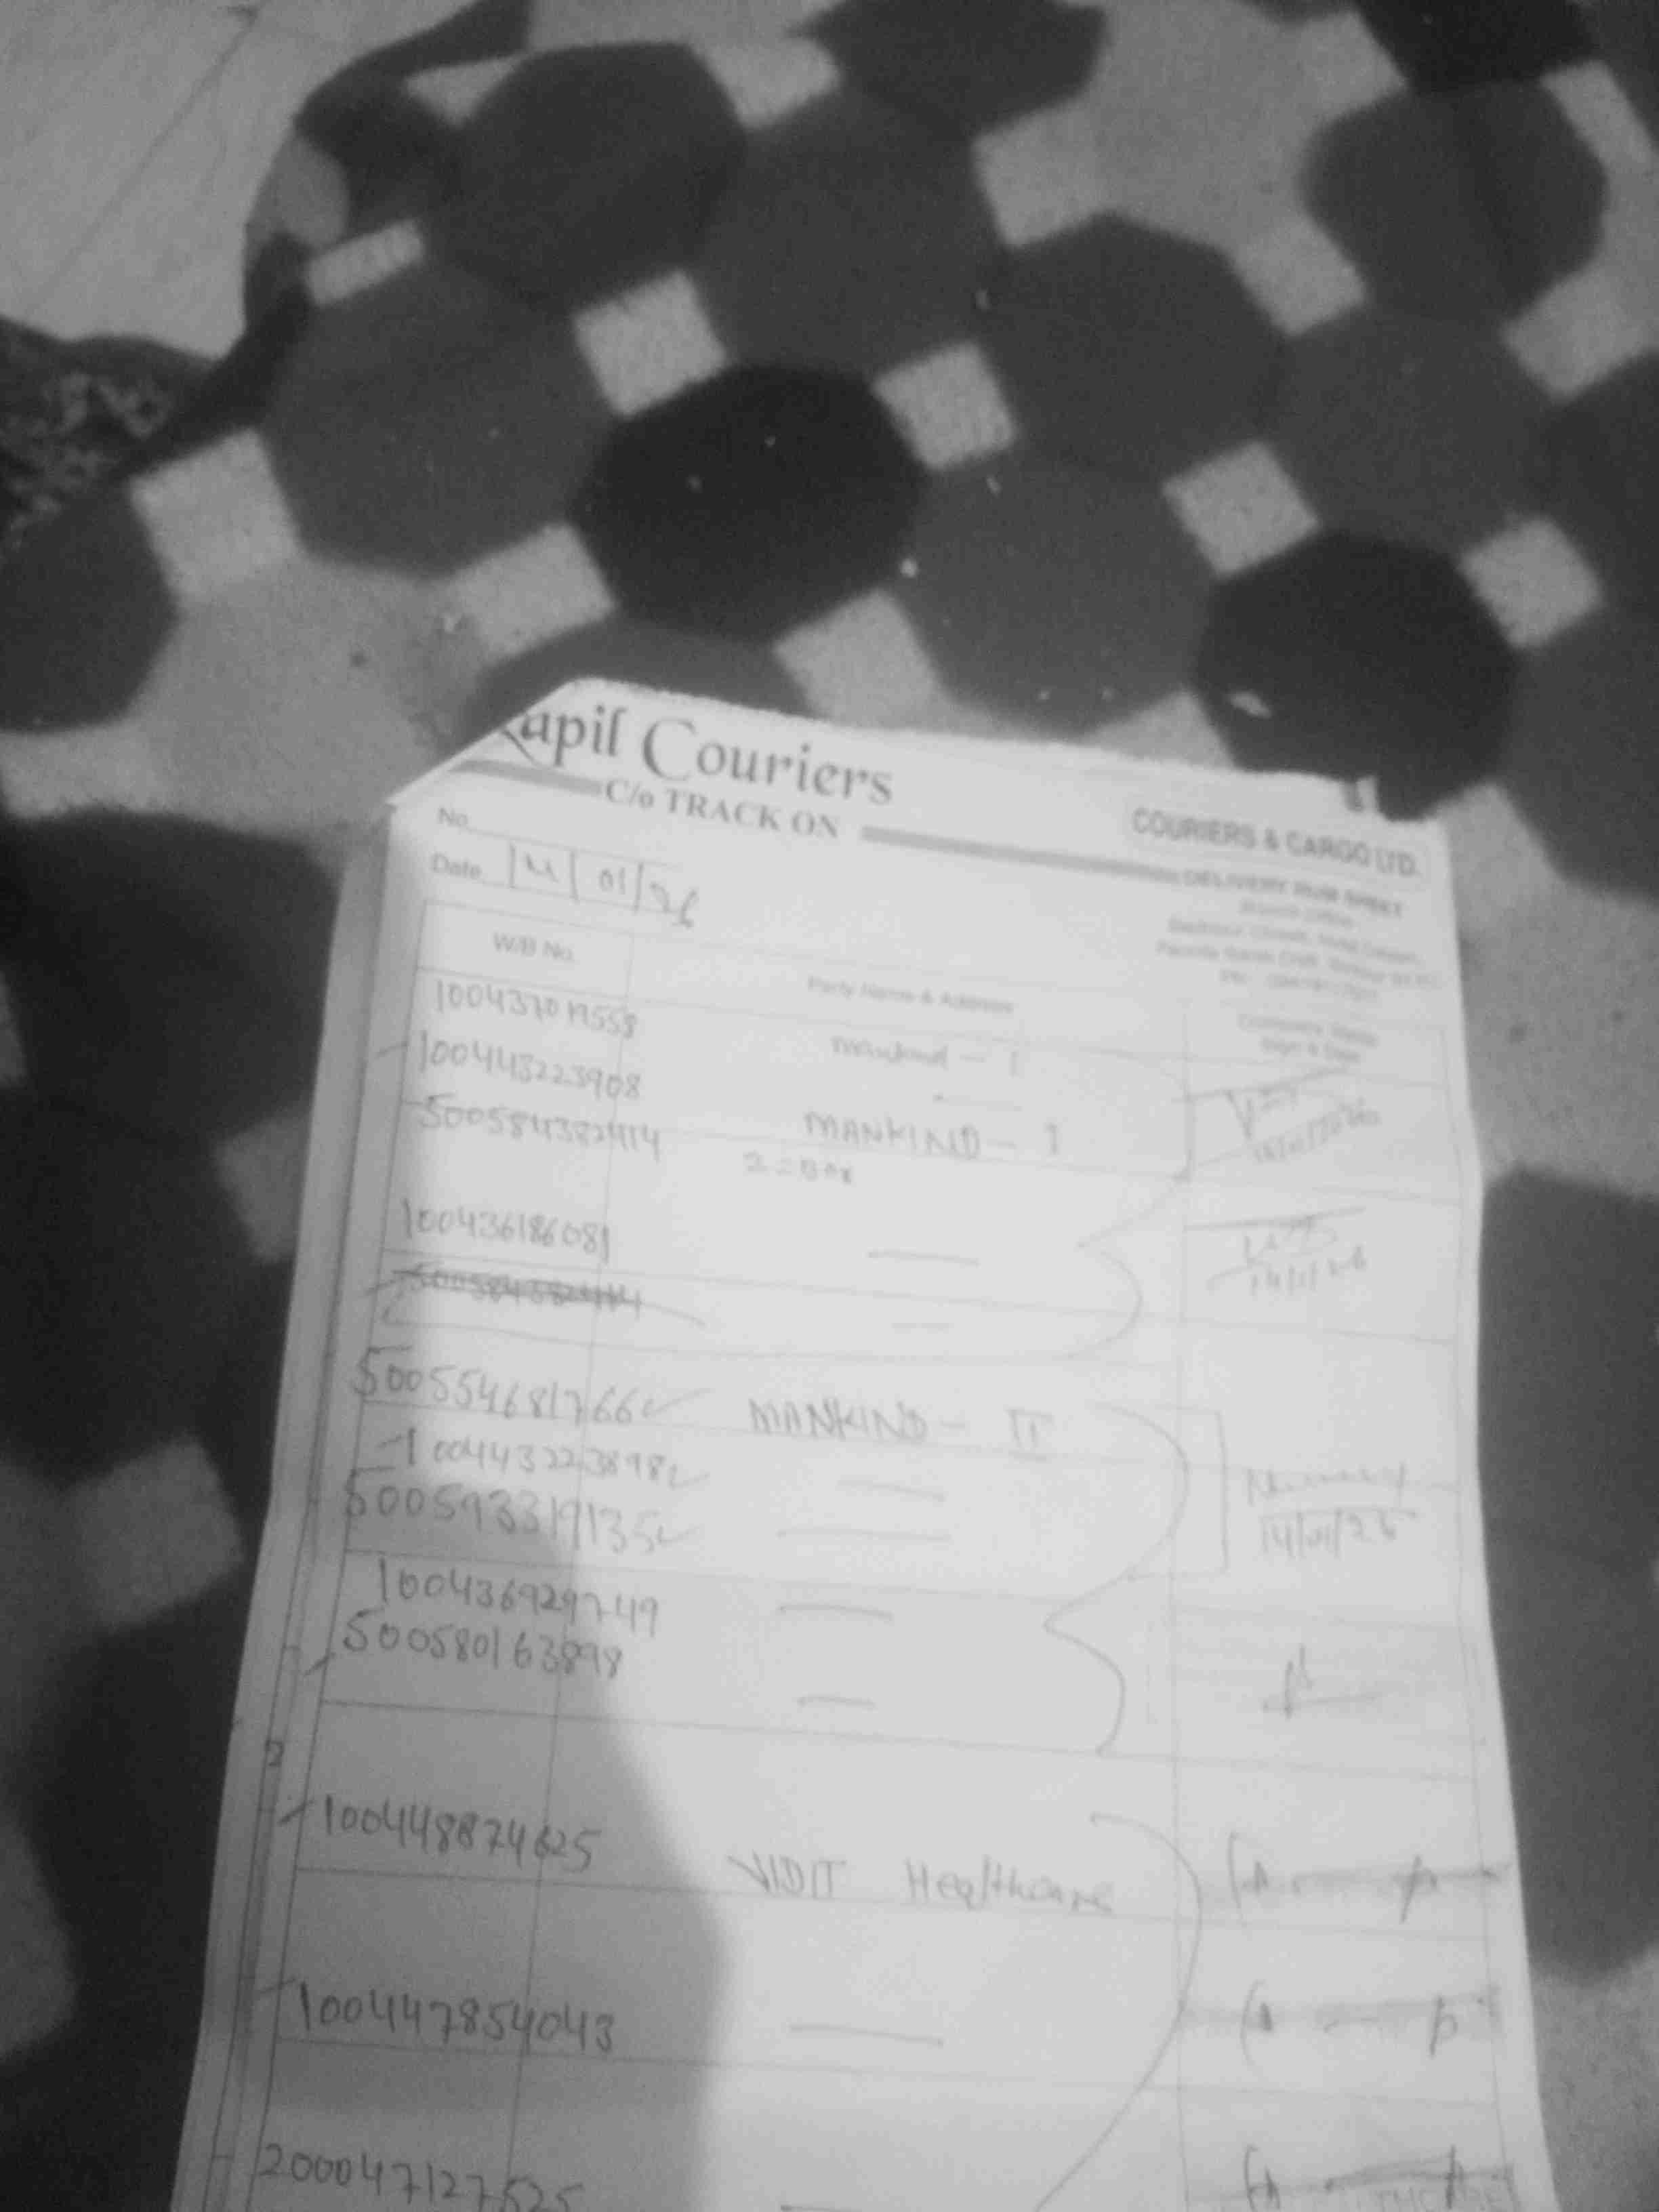 apil Couriers
C/o TRACK ON
COURIERS & CARGO LTD.
No.
DELIVERY RUN SHEET
Date
W/B No.
Party Name & Address
100437019558
Mankind - 1
100443223908
500584382414
MANKIND - 1
2 = Box
100436186081
14/1/26
500584382414
500554681766
MANKIND - II
100443223898
500593319135
14/01/26
100436929749
500580163898
100448874625
VIDIT Healthcare
100447854043
200047127525